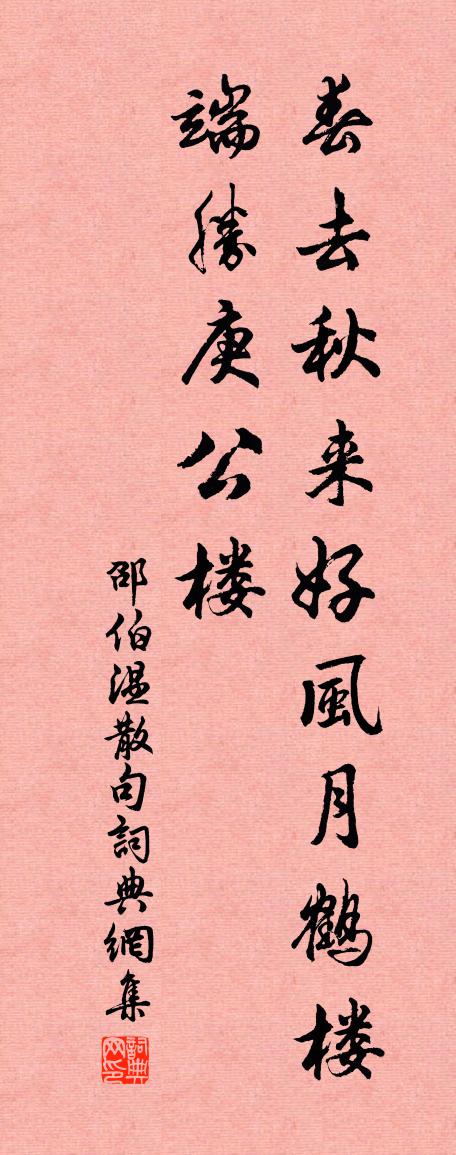 春去秋来好風月鶴楼
端勝庚公楼
邵伯温散句詞典網集
詞典网印